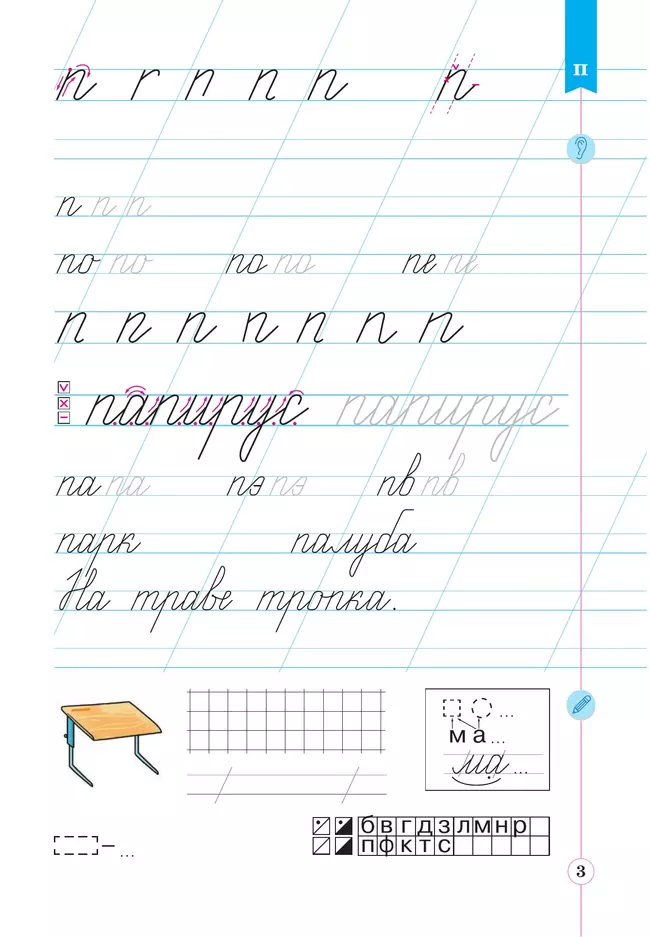 п
п г п п п п
п п п
по по по по пе пе
п п п п п п п
папирус папирус
па па пэ пэ пв пв
парк палуба
На траве тропка.
...
м а ...
ма ...
б в г д з л м н р
п ф к т с
– ...
3